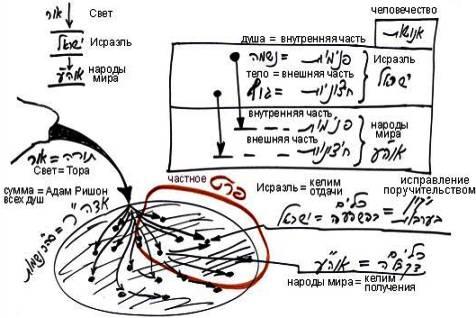 человечество
אנושות
אור
Свет
ישראל
Исраэль
או"ה
народы
мира
душа = внутренняя часть
פנימיות = נשמה
Исраэль
ישראל
тело = внешняя часть
חיצוניות = גוף
внутренняя часть
פנימיות
внешняя часть
חיצוניות
народы
мира
או"ה
תורה = אור
Свет = Тора
сумма = Адам Ришон
всех душ
частное
פרט
Исраэль = келим
отдачи
исправление
поручительством
תיקון
בערבות
כלים
דהשפעה = ישראל
כלים
דקבלה = או"ה
народы мира = келим
получения